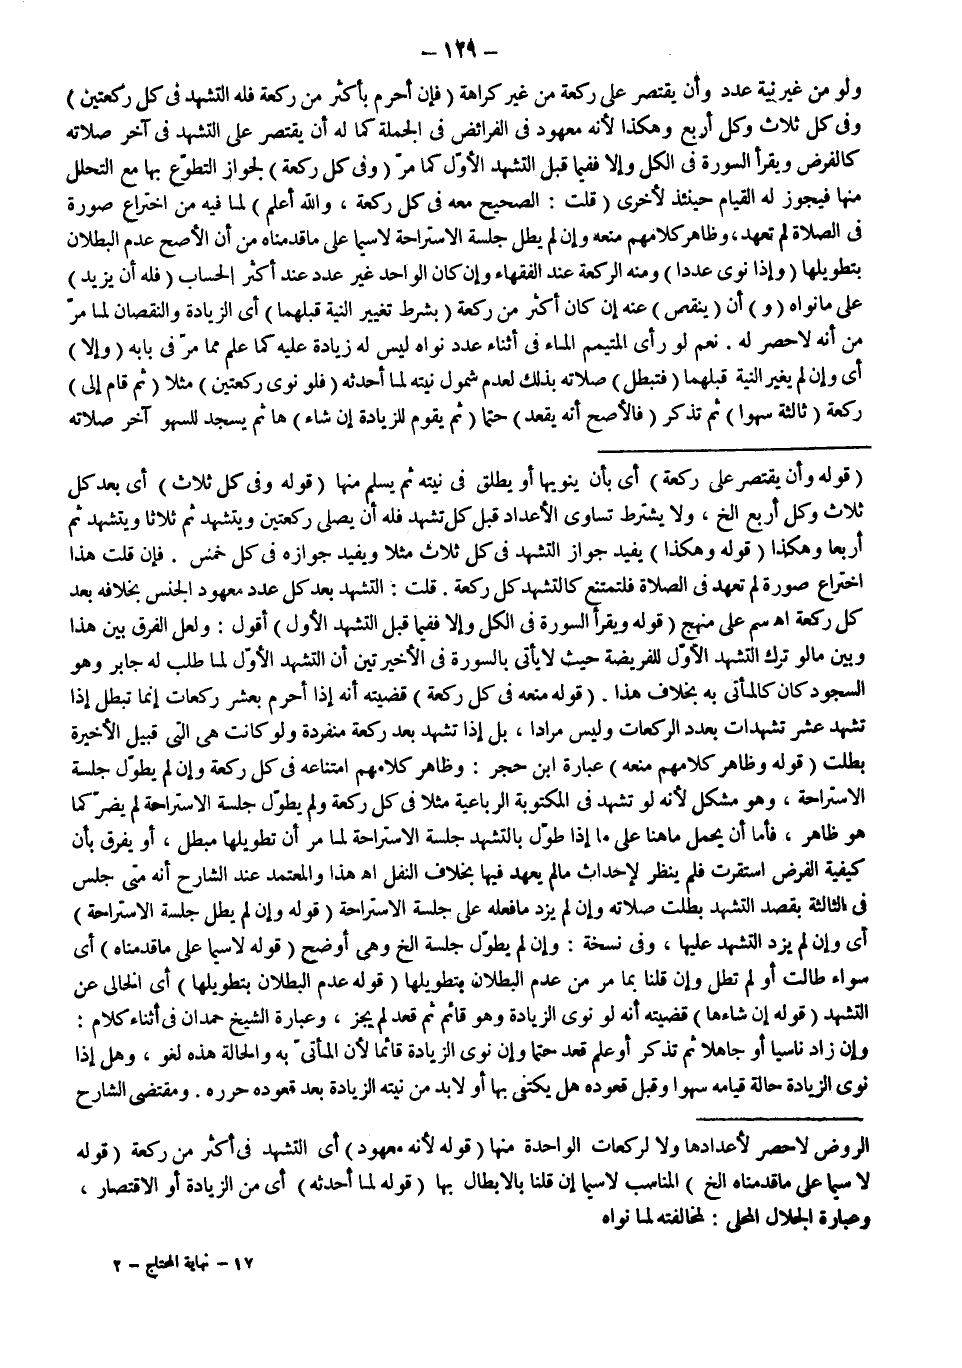 – ١٢٩ –
ولو من غير نية عدد وأن يقتصر على ركعة من غير كراهة ( فإن أحرم بأكثر من ركعة فله التشهد فى كل ركعتين )
وفى كل ثلاث وكل أربع وهكذا لأنه معهود فى الفرائض فى الجملة كما له أن يقتصر على التشهد فى آخر صلاته
كالفرض ويقرأ السورة فى الكل وإلا ففيما قبل التشهد الأوّل كما مرّ ( وفى كل ركعة ) لجواز التطوّع بها مع التحلل
منها فيجوز له القيام حينئذ لأخرى ( قلت : الصحيح معه فى كل ركعة ، والله أعلم ) لما فيه من اختراع صورة
فى الصلاة لم تعهد ، وظاهر كلامهم منعه وإن لم يطل جلسة الاستراحة لاسيما على ماقدمناه من أن الأصح عدم البطلان
بتطويلها ( وإذا نوى عددا ) ومنه الركعة عند الفقهاء وإن كان الواحد غير عدد عند أكثر الحساب ( فله أن يزيد )
على مانواه ( و ) أن ( ينقص ) عنه إن كان أكثر من ركعة ( بشرط تغيير النية قبلهما ) أى الزيادة والنقصان لما مرّ
من أنه لاحصر له . نعم لو رأى المتيمم الماء فى أثناء عدد نواه ليس له زيادة عليه كما علم مما مرّ فى بابه ( وإلا )
أى وإن لم يغير النية قبلهما ( فتبطل ) صلاته بذلك لعدم شمول نيته لما أحدثه ( فلو نوى ركعتين ) مثلا ( ثم قام إلى )
ركعة ( ثالثة سهوا ) ثم تذكر ( فالأصح أنه يقعد ) حتما ( ثم يقوم للزيادة إن شاء ) ها ثم يسجد للسهو آخر صلاته
( قوله وأن يقتصر على ركعة ) أى بأن ينويها أو يطلق فى نيته ثم يسلم منها ( قوله وفى كل ثلاث ) أى بعد كل
ثلاث وكل أربع الخ ، ولا يشترط تساوى الأعداد قبل كل تشهد فله أن يصلى ركعتين ويتشهد ثم ثلاثا ويتشهد ثم
أربعا وهكذا ( قوله وهكذا ) يفيد جواز التشهد فى كل ثلاث مثلا ويفيد جوازه فى كل خمس . فإن قلت هذا
اختراع صورة لم تعهد فى الصلاة فلتمتنع كالتشهد كل ركعة . قلت : التشهد بعد كل عدد معهود الجنس بخلافه بعد
كل ركعة اه سم على منهج ( قوله ويقرأ السورة فى الكل وإلا ففيما قبل التشهد الأول ) أقول : ولعل الفرق بين هذا
وبين مالو ترك التشهد الأوّل للفريضة حيث لايأتى بالسورة فى الأخيرتين أن التشهد الأوّل لما طلب له جابر وهو
السجود كان كالمأتى به بخلاف هذا . ( قوله منعه فى كل ركعة ) قضيته أنه إذا أحرم بعشر ركعات إنما تبطل إذا
تشهد عشر تشهدات بعدد الركعات وليس مرادا ، بل إذا تشهد بعد ركعة منفردة ولو كانت هى التى قبيل الأخيرة
بطلت ( قوله وظاهر كلامهم منعه ) عبارة ابن حجر : وظاهر كلامهم امتناعه فى كل ركعة وإن لم يطوّل جلسة
الاستراحة ، وهو مشكل لأنه لو تشهد فى المكتوبة الرباعية مثلا فى كل ركعة ولم يطوّل جلسة الاستراحة لم يضرّ كما
هو ظاهر ، فأما أن يحمل ماهنا على ما إذا طوّل بالتشهد جلسة الاستراحة لما مر أن تطويلها مبطل ، أو يفرق بأن
كيفية الفرض استقرت فلم ينظر لإحداث مالم يعهد فيها بخلاف النفل اه هذا والمعتمد عند الشارح أنه متى جلس
فى الثالثة بقصد التشهد بطلت صلاته وإن لم يزد مافعله على جلسة الاستراحة ( قوله وإن لم يطل جلسة الاستراحة )
أى وإن لم يزد التشهد عليها ، وفى نسخة : وإن لم يطوّل جلسة الخ وهى أوضح ( قوله لاسيما على ماقدمناه ) أى
سواء طالت أو لم تطل وإن قلنا بما مر من عدم البطلان بتطويلها ( قوله عدم البطلان بتطويلها ) أى الخالى عن
التشهد ( قوله إن شاءها ) قضيته أنه لو نوى الزيادة وهو قائم ثم قعد لم يجز ، وعبارة الشيخ حمدان فى أثناء كلام :
وإن زاد ناسيا أو جاهلا ثم تذكر أو علم قعد حتما وإن نوى الزيادة قائما لأن المأتىّ به والحالة هذه لغو ، وهل إذا
نوى الزيادة حالة قيامه سهوا وقبل قعوده هل يكتفى بها أو لابد من نيته الزيادة بعد قعوده حرره . ومقتضى الشارح
الروض لاحصر لأعدادها ولا لركعات الواحدة منها ( قوله لأنه معهود ) أى التشهد فى أكثر من ركعة ( قوله
لا سيما على ماقدمناه الخ ) المناسب لاسيما إن قلنا بالابطال بها ( قوله لما أحدثه ) أى من الزيادة أو الاقتصار ،
وعبارة الجلال المحلى : لمخالفته لما نواه
١٧ – نهاية المحتاج – ٢